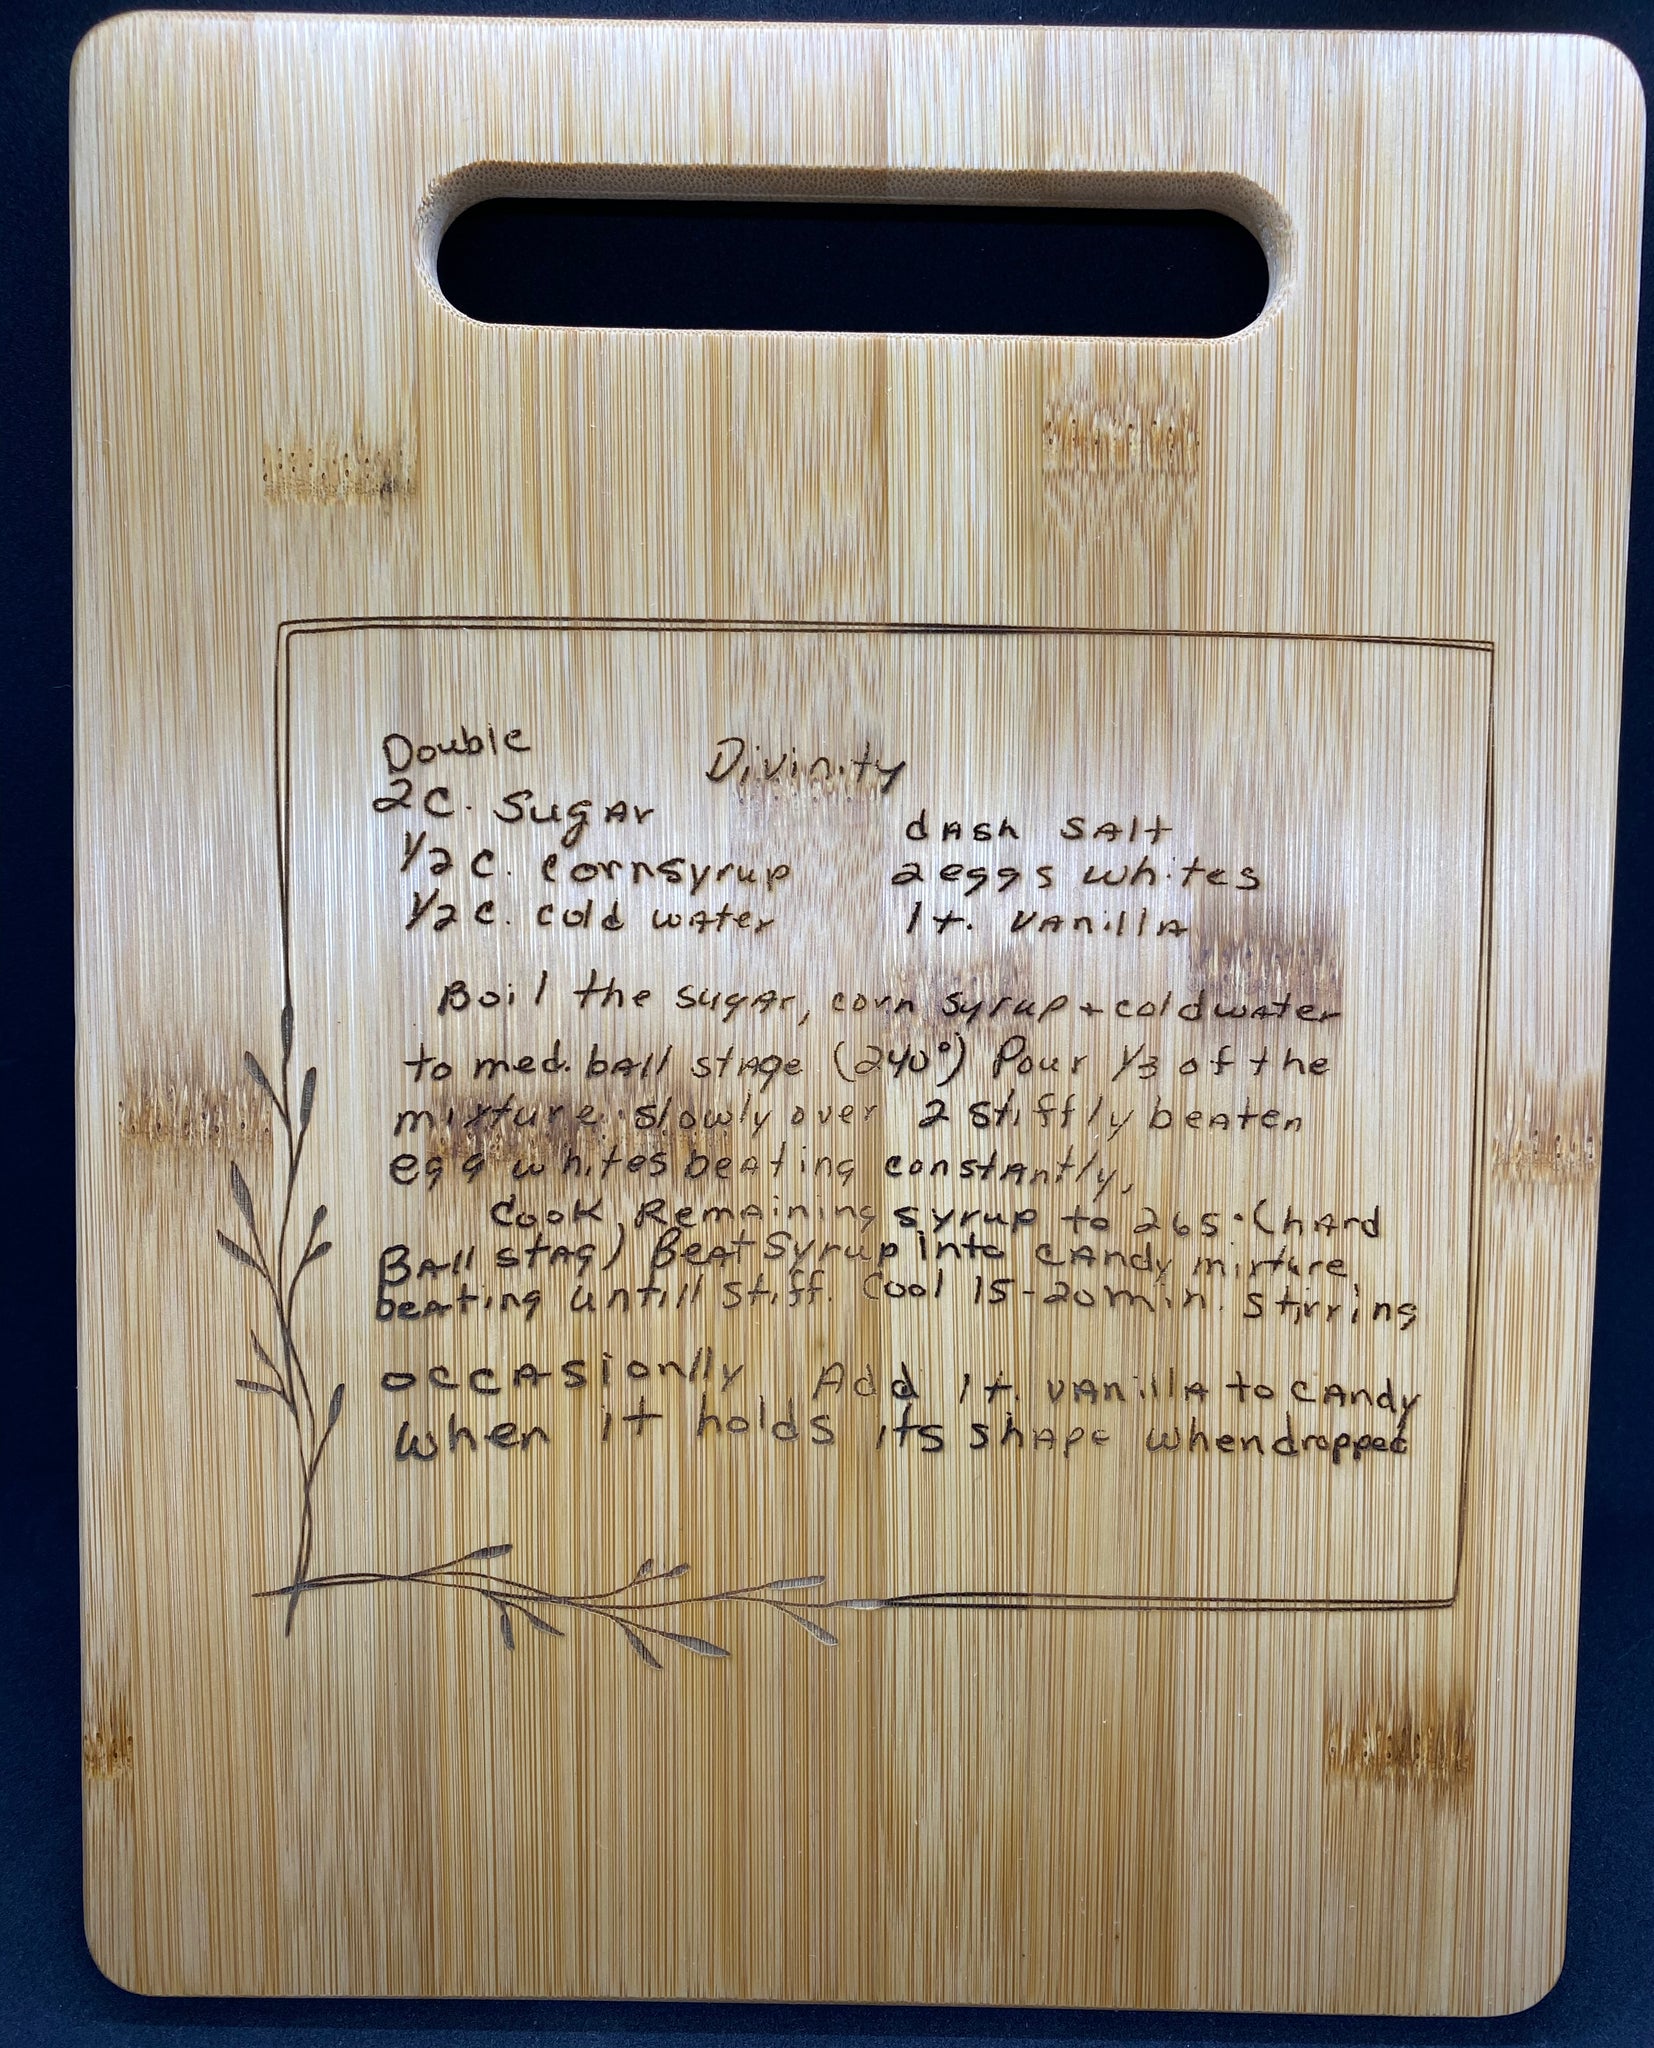 Double
Divinity
2 C. Sugar
1/2 C. cornsyrup
1/2 C. cold water
dash salt
2 eggs whites
1 t. vanilla
Boil the sugar, corn syrup + cold water
to med. ball stage (240°) Pour 1/3 of the
mixture slowly over 2 stiffly beaten
egg whites beating constantly,
Cook Remaining syrup to 265° (hard
Ball stag) Beat Syrup into candy mixture
beating untill stiff. Cool 15-20 min. stirring
occasionlly Add 1 t. vanilla to candy
when it holds its shape when dropped